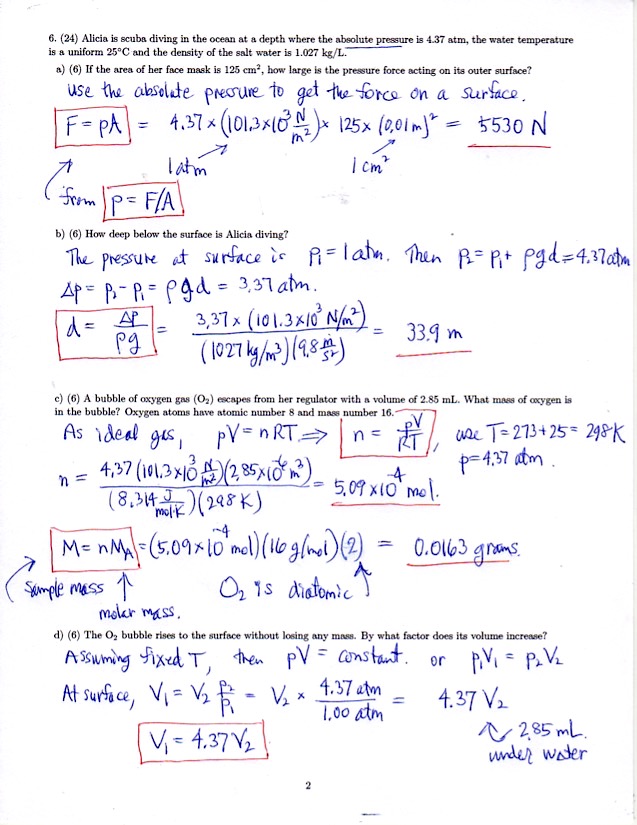 6. (24) Alicia is scuba diving in the ocean at a depth where the absolute pressure is 4.37 atm, the water temperature
is a uniform 25°C and the density of the salt water is 1.027 kg/L.
a) (6) If the area of her face mask is 125 cm², how large is the pressure force acting on its outer surface?
Use the absolute pressure to get the force on a surface.
F = pA = 4.37 × (101.3×10³ N/m²) × 125 × (0.01 m)² = 5530 N
1 atm 1 cm²
from p = F/A
b) (6) How deep below the surface is Alicia diving?
The pressure at surface is P₁ = 1 atm. Then P₂ = P₁ + ρgd = 4.37 atm
Δp = p₂ - p₁ = ρgd = 3.37 atm.
d = Δp/ρg = 3.37 × (101.3×10³ N/m²) / (1027 kg/m³)(9.8 m/s²) = 33.9 m
c) (6) A bubble of oxygen gas (O₂) escapes from her regulator with a volume of 2.85 mL. What mass of oxygen is
in the bubble? Oxygen atoms have atomic number 8 and mass number 16.
As ideal gas, pV = nRT ⇒ n = pV/RT, use T = 273 + 25 = 298 K
p = 4.37 atm.
n = 4.37 (101.3×10³ N/m²)(2.85×10⁻⁶ m³) / (8.314 J/mol·K)(298 K) = 5.09×10⁻⁴ mol.
M = nM_A = (5.09×10⁻⁴ mol)(16 g/mol)(2) = 0.0163 grams.
Sample mass O₂ is diatomic
molar mass.
d) (6) The O₂ bubble rises to the surface without losing any mass. By what factor does its volume increase?
Assuming fixed T, then pV = constant. or P₁V₁ = P₂V₂
At surface, V₁ = V₂ P₂/P₁ = V₂ × 4.37 atm/1.00 atm = 4.37 V₂
V₁ = 4.37 V₂ 2.85 mL.
under water
2